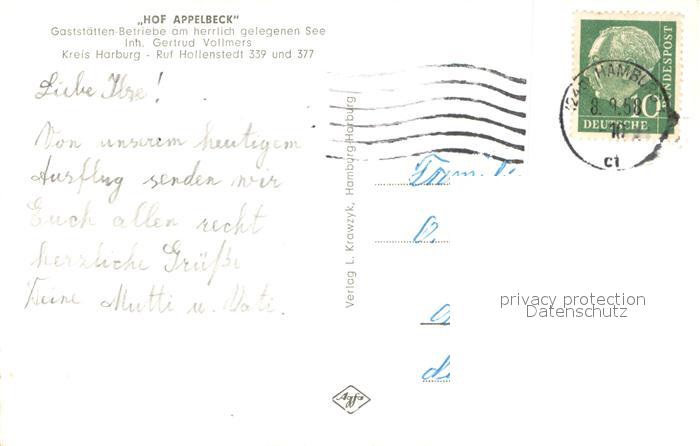 „HOF APPELBECK“
Gaststätten-Betriebe am herrlich gelegenen See
Inh. Gertrud Vollmers
Kreis Harburg - Ruf Hollenstedt 339 und 377
Liebe Ilse!
Von unserem heutigem
Ausflug senden wir
Euch allen recht
herzliche Grüße
Deine Mutti u. Vati.
Verlag L. Krawzyk, Hamburg-Harburg
Agfa
HAMBURG
8.9.58
10
DEUTSCHE
BUNDESPOST
privacy protection
Datenschutz